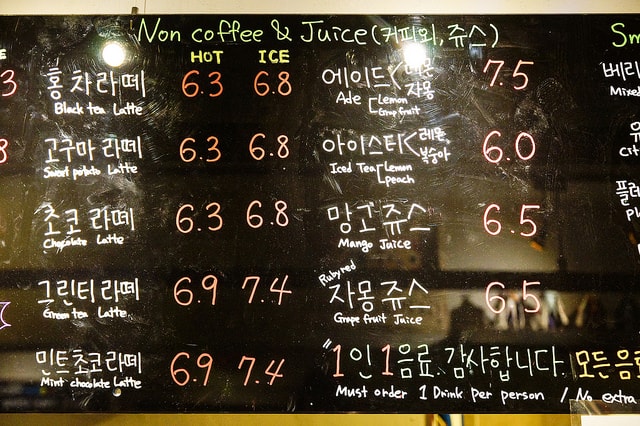 Non coffee & Juice (커피외, 쥬스)
HOT ICE
홍차라떼 6.3 6.8
Black tea Latte
고구마 라떼 6.3 6.8
Sweet potato Latte
초코 라떼 6.3 6.8
Chocolate Latte
그린티라떼 6.9 7.4
Green tea Latte
민트초코라떼 6.9 7.4
Mint chocolate Latte
에이드 레몬 7.5
자몽
Ade Lemon
Grape fruit
아이스티 레몬 6.0
복숭아
Iced Tea Lemon
peach
망고쥬스 6.5
Mango Juice
Ruby red
자몽쥬스 6.5
Grape fruit Juice
"1인 1음료. 감사합니다. 모든음료
Must order 1 Drink per person / No extra
Sm
베리
Mixed
Cit
플레
Pl